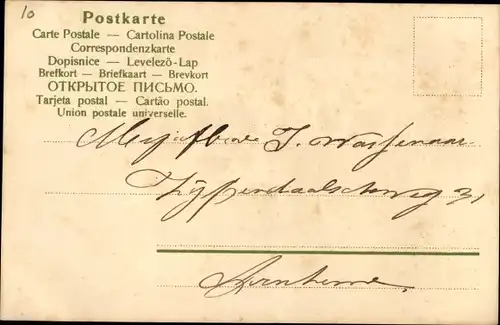 10
Postkarte
Carte Postale — Cartolina Postale
Correspondenzkarte
Dopisnice — Levelező-Lap
Brefkort — Briefkaart — Brevkort
ОТКРЫТОЕ ПИСЬМО.
Tarjeta postal — Cartão postal.
Union postale universelle.
J. Wassenaar
Zijpendaalscheweg 31
Arnhem.